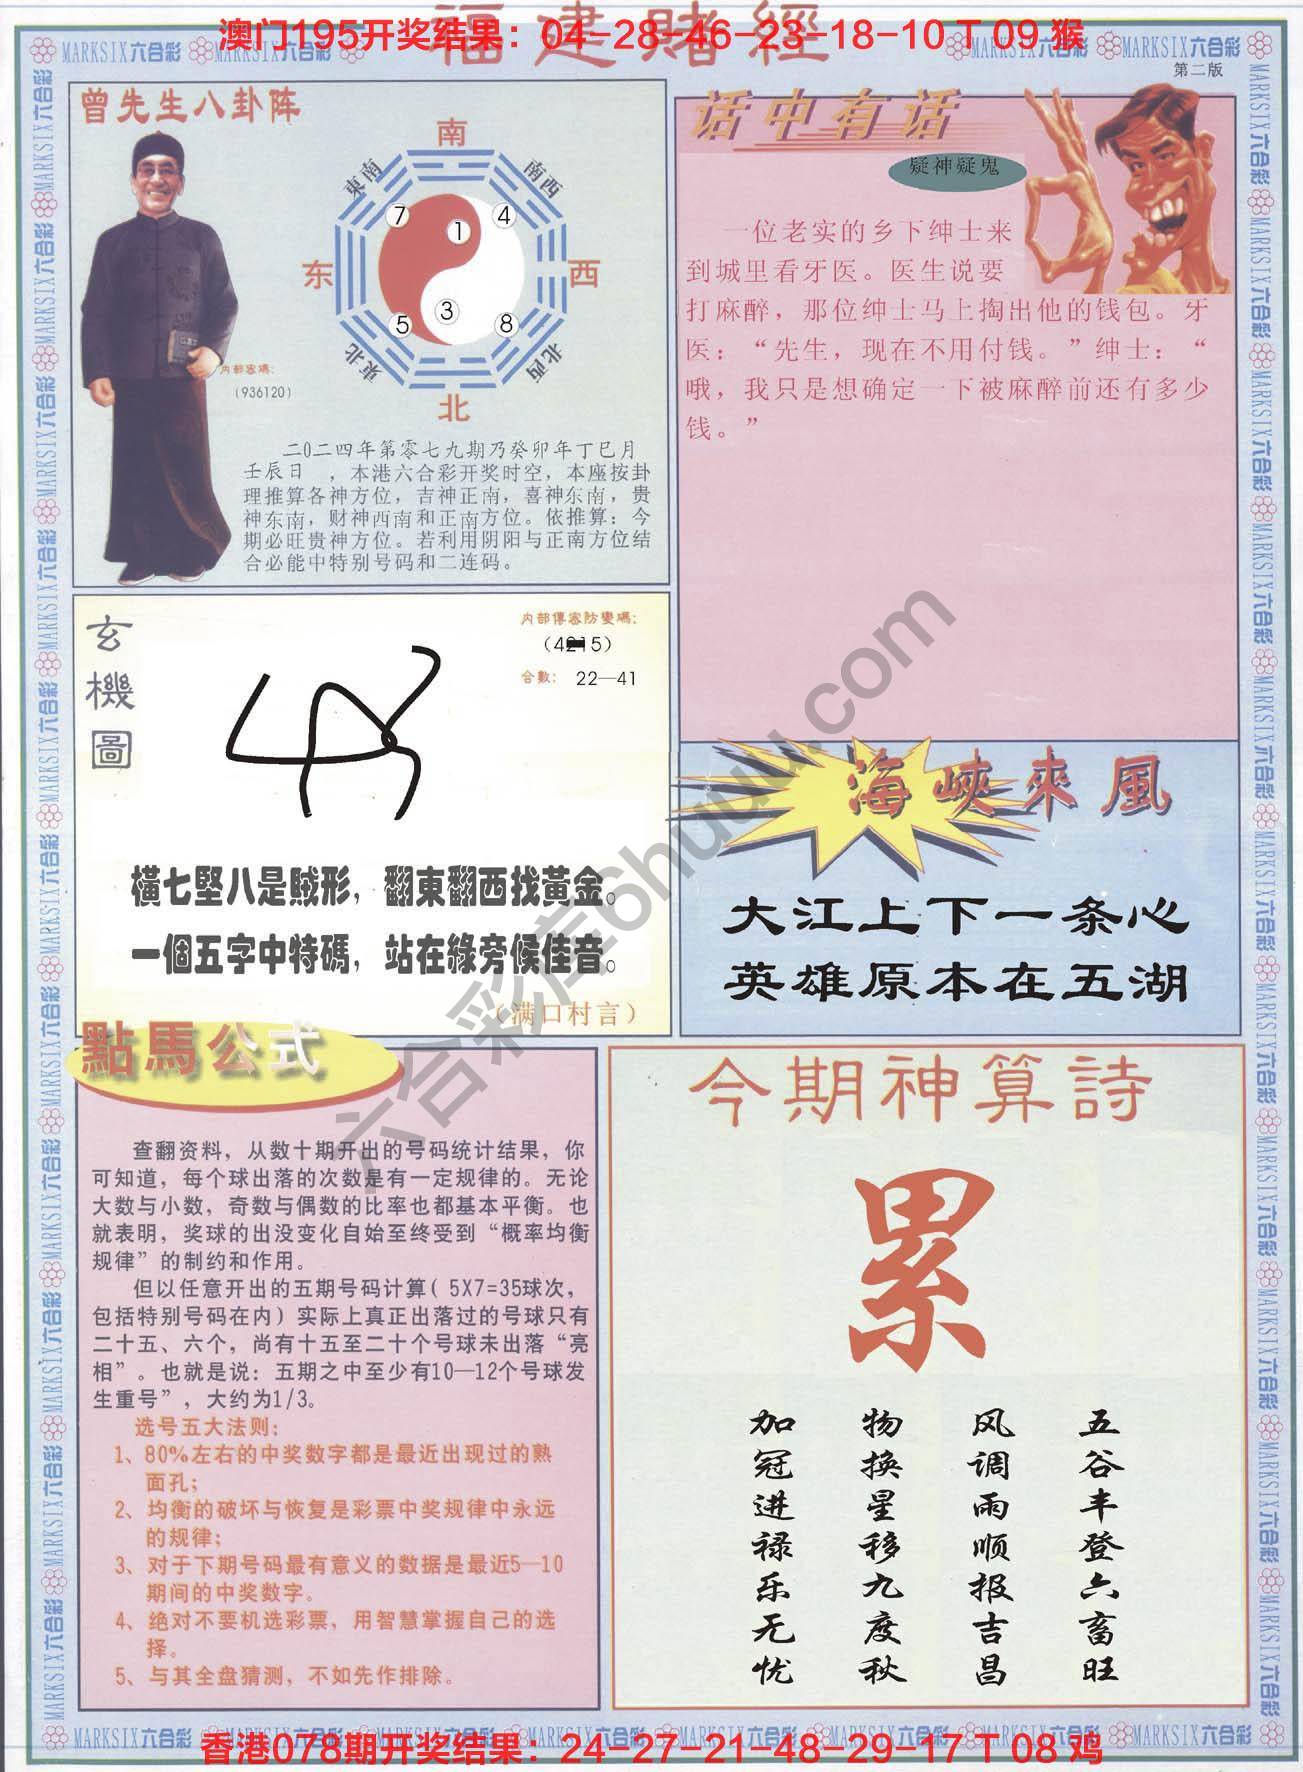 福建賭經
澳门195开奖结果：04-28-46-23-18-10 T 09 猴
MARKSIX六合彩
第二版
曾先生八卦阵
南
東南
南西
7
1
4
东
西
5
3
8
東北
北西
北
内部密碼：
（936120）
二0二四年第零七九期乃癸卯年丁巳月
壬辰日　，本港六合彩开奖时空，本座按卦
理推算各神方位，吉神正南，喜神东南，贵
神东南，财神西南和正南方位。依推算：今
期必旺贵神方位。若利用阴阳与正南方位结
合必能中特别号码和二连码。
话中有话
疑神疑鬼
一位老实的乡下绅士来
到城里看牙医。医生说要
打麻醉，那位绅士马上掏出他的钱包。牙
医：“先生，现在不用付钱。”绅士：“
哦，我只是想确定一下被麻醉前还有多少
钱。”
玄機圖
内部傳密防變碼：
合數： 22—41
橫七堅八是賊形，翻東翻西找黃金。
一個五字中特碼，站在綠旁候佳音。
（满口村言）
海峽來風
大江上下一条心
英雄原本在五湖
點馬公式
查翻资料，从数十期开出的号码统计结果，你
可知道，每个球出落的次数是有一定规律的。无论
大数与小数，奇数与偶数的比率也都基本平衡。也
就表明，奖球的出没变化自始至终受到“概率均衡
规律”的制约和作用。
但以任意开出的五期号码计算（5X7=35球次，
包括特别号码在内）实际上真正出落过的号球只有
二十五、六个，尚有十五至二十个号球未出落“亮
相”。也就是说：五期之中至少有10—12个号球发
生重号”，大约为1/3。
选号五大法则：
1、80%左右的中奖数字都是最近出现过的熟
面孔；
2、均衡的破坏与恢复是彩票中奖规律中永远
的规律；
3、对于下期号码最有意义的数据是最近5—10
期间的中奖数字。
4、绝对不要机选彩票，用智慧掌握自己的选
择。
5、与其全盘猜测，不如先作排除。
今期神算詩
累
五谷丰登六畜旺
风调雨顺报吉昌
物换星移九度秋
加冠进禄乐无忧
六合彩库6huuu.com
香港078期开奖结果：24-27-21-48-29-17 T 08 鸡